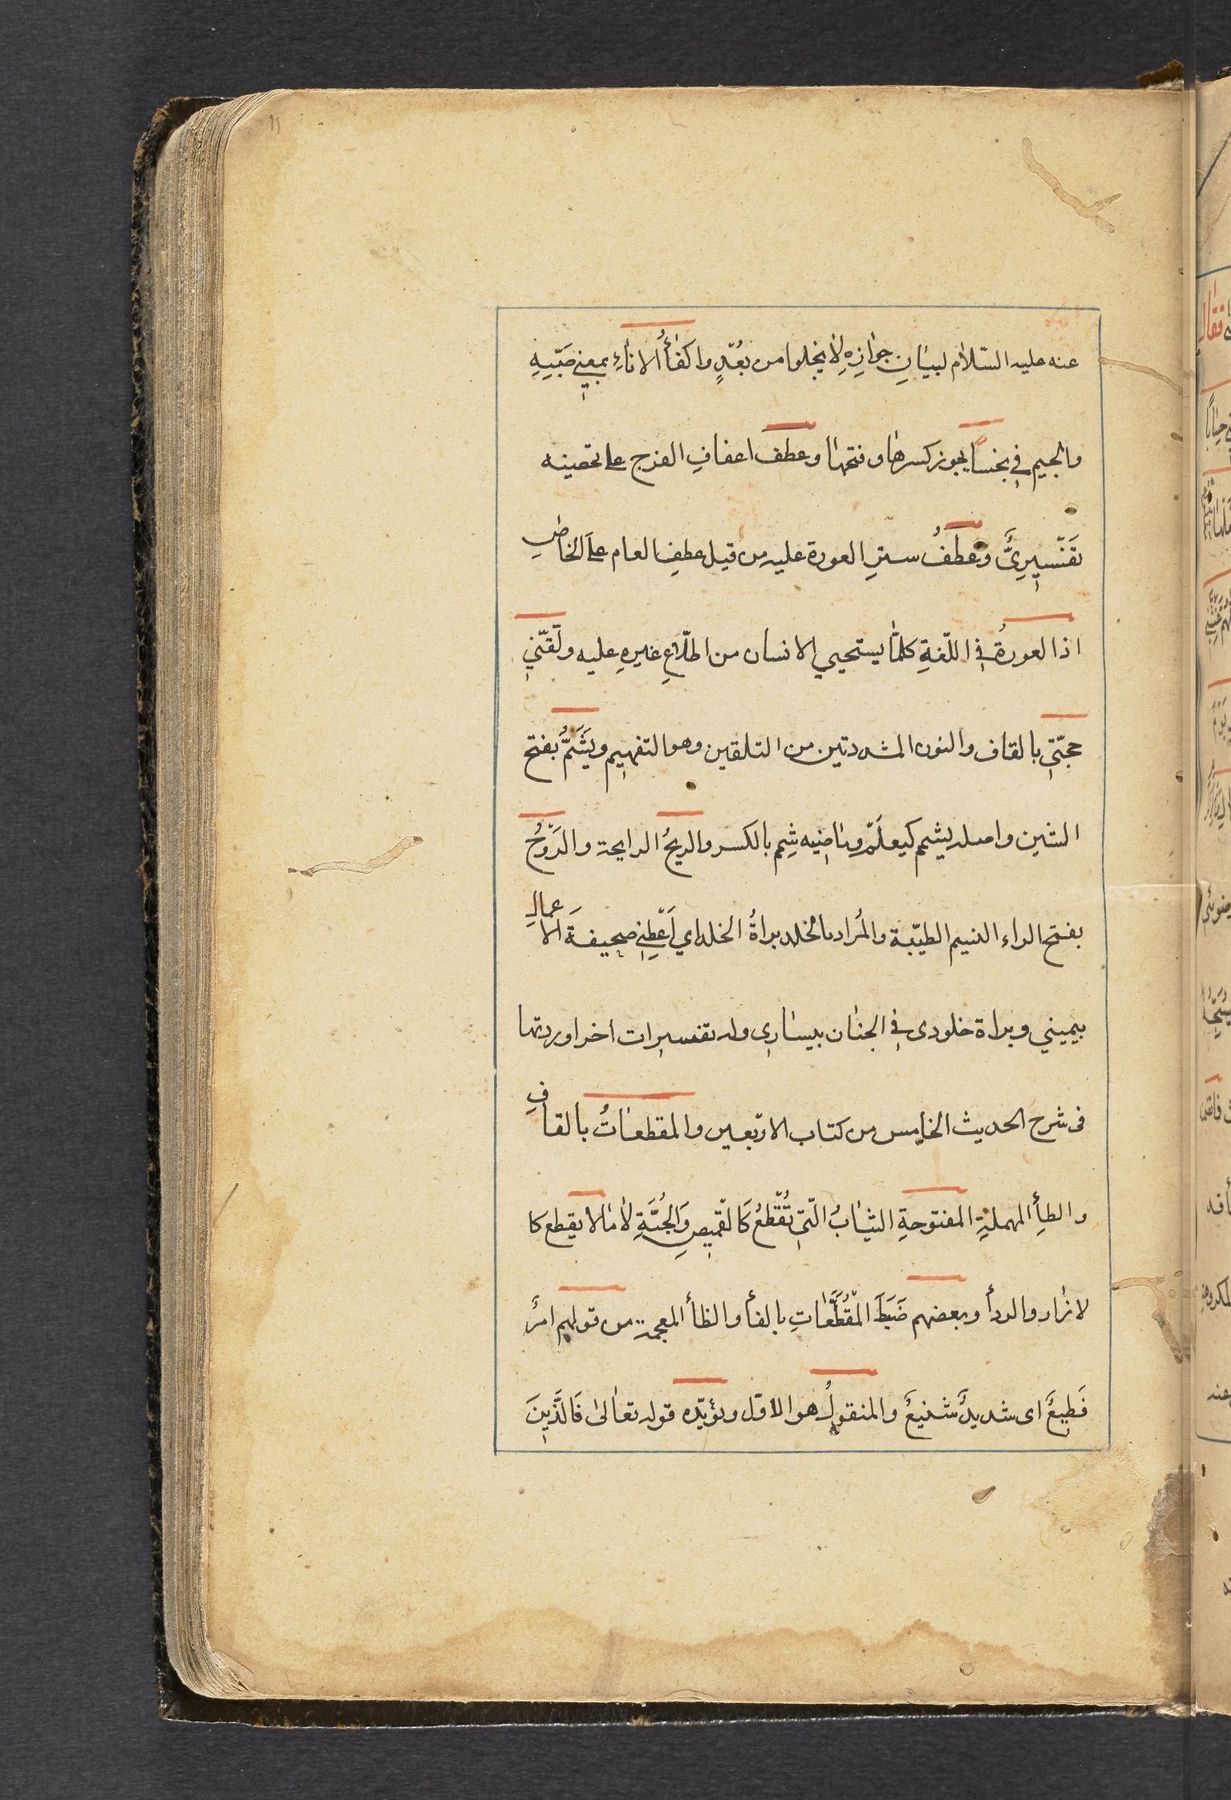 عنه عليه السّلام لبيَانِ جوازِهِ لا يخلوا من بعُدٍ واكفَأُ الانَاءِ بمعنى صَبّهِ
والجيم في نجسًا يجوز كسرها وفتحها وعطف اعفافِ الفرج على تحصينه
تَفسيرِىٌّ وعَطفُ سترِ العورة عليه من قبيل عطفِ العام على الخاصِ
اذ العورةُ في اللّغةِ كلمّا يستحيي الانسان من اطّلاعِ غيرهِ عليه ولَقّنّي
حجتّي بالقاف والنون المشددتين من التلقين وهو التفهيم ويَشَمُّ بفتح
الشين واصله يشمم كيعلَمُ وماضيه شمِم بالكسر والريحُ الرايحة والرَوّحُ
بفتح الراء النسيم الطيّبة والمُراد بالخلد براةُ الخلد اي اَعْطِنى صحيفةَ الاعمالِ
بيميني وبراة خلودى في الجنان بيسَارى وله تفسيرات اخر اوردتها
فى شرح الحديث الخامس من كتاب الاربعين والمقطعاتُ بالقافِ
والطأِ المهملةِ المفتوحةِ الثيَابُ الّتي تُقْطعُ كَالقَميصِ وَالجُبَّةِ لا مالا يقطع كا
لازار والردأ وبعضهم ضَبَطَ المُقُطَّعَاتِ بالفأ والظأ المعجمة من قولهم امرٌ
فَظِيعٌ اى شديدٌ شنيعٌ والمنقولُ هو الاوّل ويؤيّده قوله تعالىٰ فَالَّذِينَ